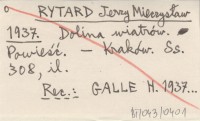 RYTARD Jerzy Mieczysław
1937. Dolina wiatrów.
Powieść. – Kraków. Ss.
308, il.
Rec.: GALLE H. 1937...